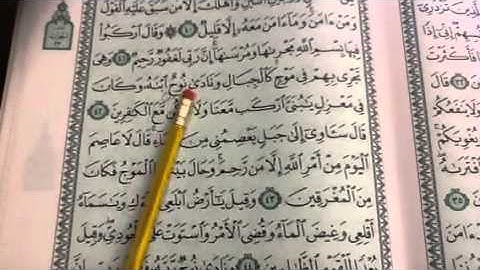 ٱثۡنَيۡنِ وَأَهۡلَكَ إِلَّا مَن سَبَقَ عَلَيۡهِ ٱلۡقَوۡلُ
وَمَنۡ ءَامَنَۚ وَمَآ ءَامَنَ مَعَهُۥٓ إِلَّا قَلِيلٞ ٤٠ ۞ وَقَالَ ٱرۡكَبُواْ
فِيهَا بِسۡمِ ٱللَّهِ مَجۡر۪ىٰهَا وَمُرۡسَىٰهَآۚ إِنَّ رَبِّي لَغَفُورٞ رَّحِيمٞ ٤١ وَهِيَ
تَجۡرِي بِهِمۡ فِي مَوۡجٖ كَٱلۡجِبَالِ وَنَادَىٰ نُوحٌ ٱبۡنَهُۥ وَكَانَ
فِي مَعۡزِلٖ يَٰبُنَيَّ ٱرۡكَب مَّعَنَا وَلَا مَّعَ ٱلۡكَٰفِرِينَ ٤٢
قَالَ سَـَٔاوِيٓ إِلَىٰ جَبَلٖ يَعۡصِمُنِي مِنَ ٱلۡمَآءِۚ قَالَ لَا عَاصِمَ
ٱلۡيَوۡمَ مِنۡ أَمۡرِ ٱللَّهِ إِلَّا مَن رَّحِمَۚ وَحَالَ بَيۡنَهُمَا ٱلۡمَوۡجُ فَكَانَ
مِنَ ٱلۡمُغۡرَقِينَ ٤٣ وَقِيلَ يَٰٓأَرۡضُ ٱبۡلَعِي وَيَٰسَمَآءُ
أَقۡلِعِي وَغِيضَ ٱلۡمَآءُ وَقُضِيَ ٱلۡأَمۡرُ وَٱسۡتَوَتۡ عَلَى ٱلۡجُودِيِّۖ وَقِيلَ
بُعۡدٗا لِّلۡقَوۡمِ ٱلظَّٰلِمِينَ ٤٤ وَنَادَىٰ نُوحٞ رَّبَّهُۥ